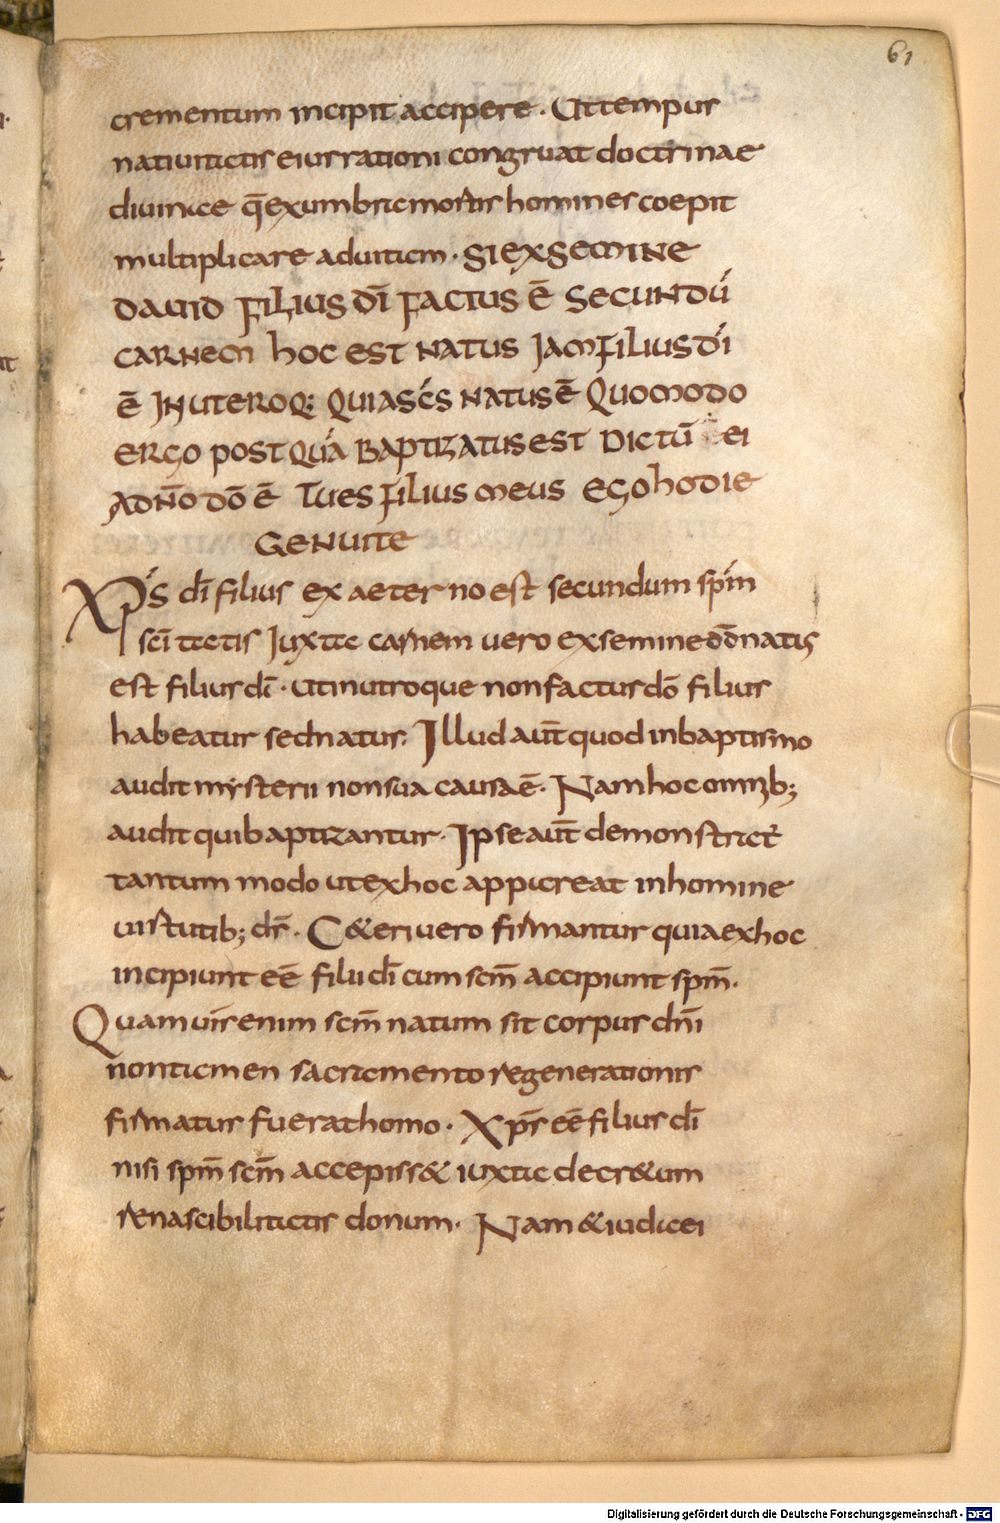 61
crementum incipit accipere · Ut tempus
natiuitatis eius rationi congruat doctrinae
diuinae q̄ ex umbra mortis homines coepit
multiplicare ad uitam · SI EX SEMINE
DAUID FILIUS DI̅ FACTUS Ē SECUNDŪ
CARNEM HOC EST NATUS IAM FILIUS DI̅
Ē IN UTEROQ; QUIA SC̄S NATUS Ē QUOMODO
ERGO POST QUĀ BAPTIZATUS EST DICTŪ EI
A DN̄O DŌ Ē TU ES FILIUS MEUS EGO HODIE
GENUI TE
XP̄S dī filius ex aeterno est secundum sp̄m
scītatis Iuxta carnem uero ex semine dd̄ natus
est filius dī · ut in utroque non factus dō filius
habeatur sed natus. Illud aūt quod in baptismo
audit mysterii non sua causa ē · Nam hoc omnib;
audit qui baptizantur · Ipse aūt demonstrat
tantum modo ut ex hoc appareat in homine
uirtutib; dr̄ · Ceteri uero firmantur quia ex hoc
incipiunt eē filii dī cum sc̄m accipiunt sp̄m ·
Quamuis enim sc̄m natum sit corpus dn̄i
non tamen sacramento regenerationis
firmatus fuerat homo · Xp̄s eē filius dī
nisi sp̄m sc̄m accepiss& iuxta decr&um
renascibilitatis donum · Nam & iudaei
Digitalisierung gefördert durch die Deutsche Forschungsgemeinschaft - DFG